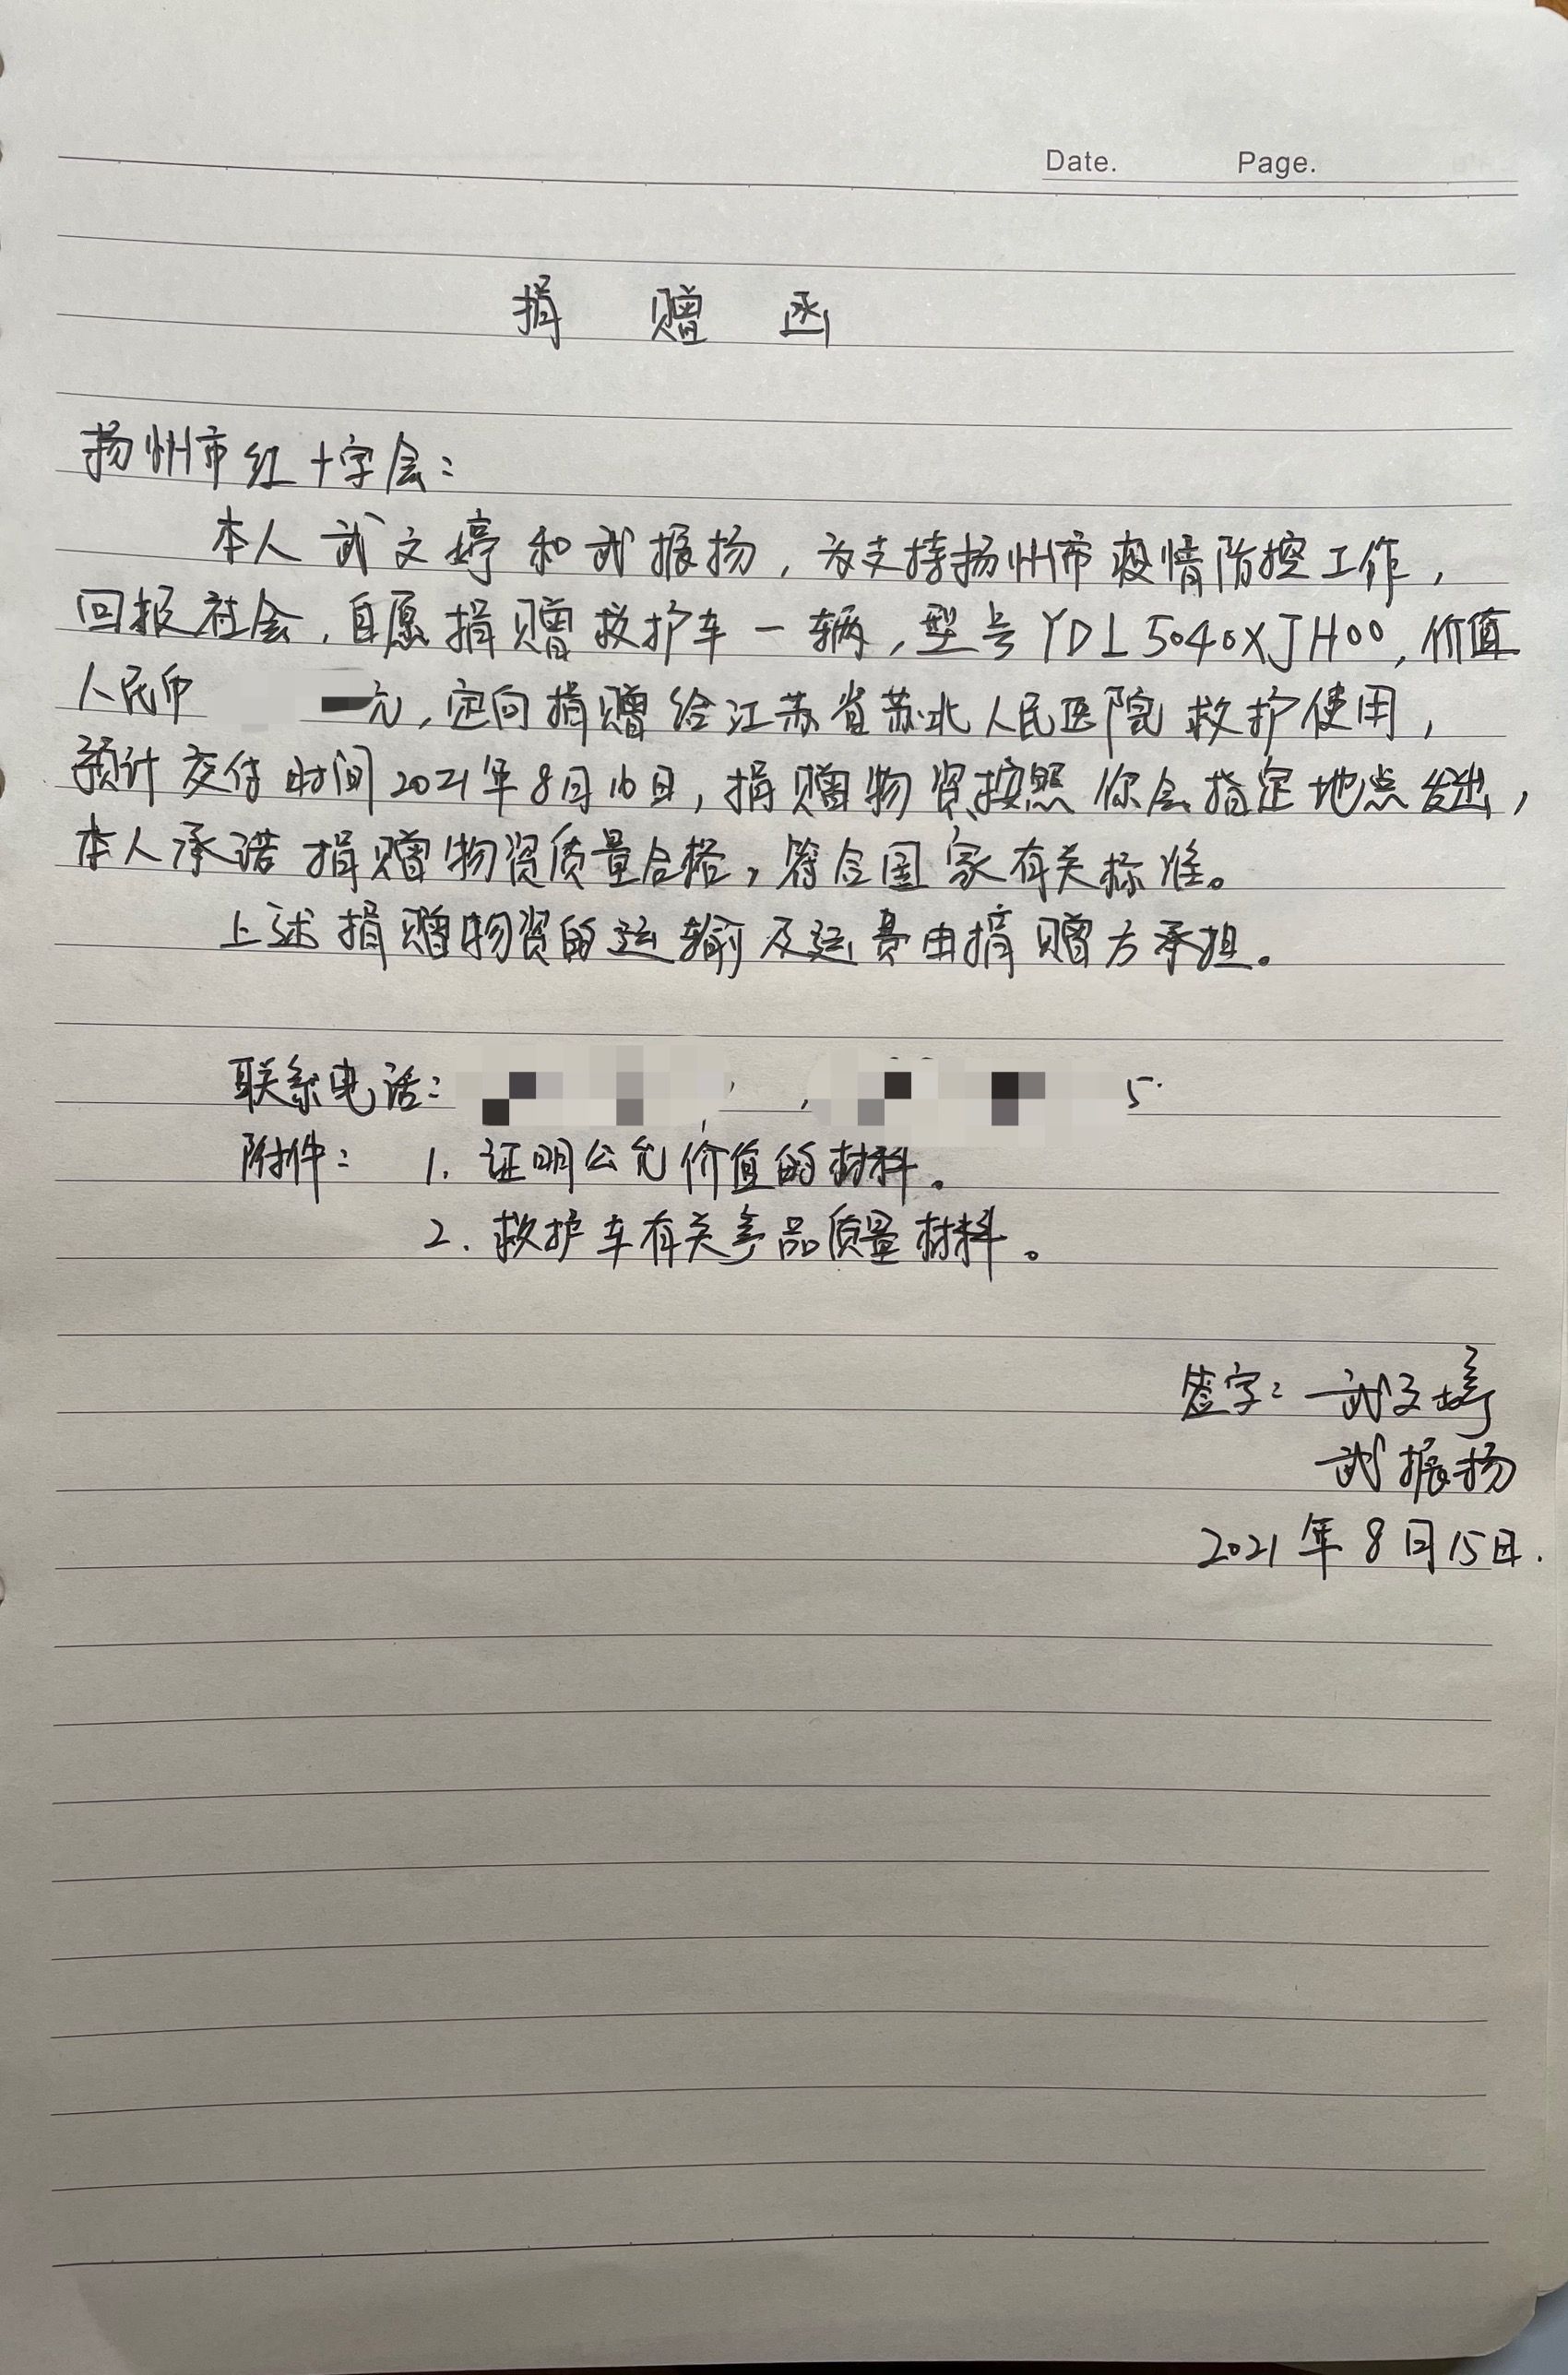 Date. Page.
捐赠函
扬州市红十字会：
本人武文婷和武振扬，为支持扬州市疫情防控工作，
回报社会，自愿捐赠救护车一辆，型号YDL5040XJH00，价值
人民币 元，定向捐赠给江苏省苏北人民医院救护使用，
预计交付时间2021年8月16日，捐赠物资按照你会指定地点发出，
本人承诺捐赠物资质量合格，符合国家有关标准。
上述捐赠物资的运输及运费由捐赠方承担。
联系电话： , 5.
附件： 1. 证明公允价值的材料。
2. 救护车有关产品质量材料。
签字：武文婷
武振扬
2021年8月15日.